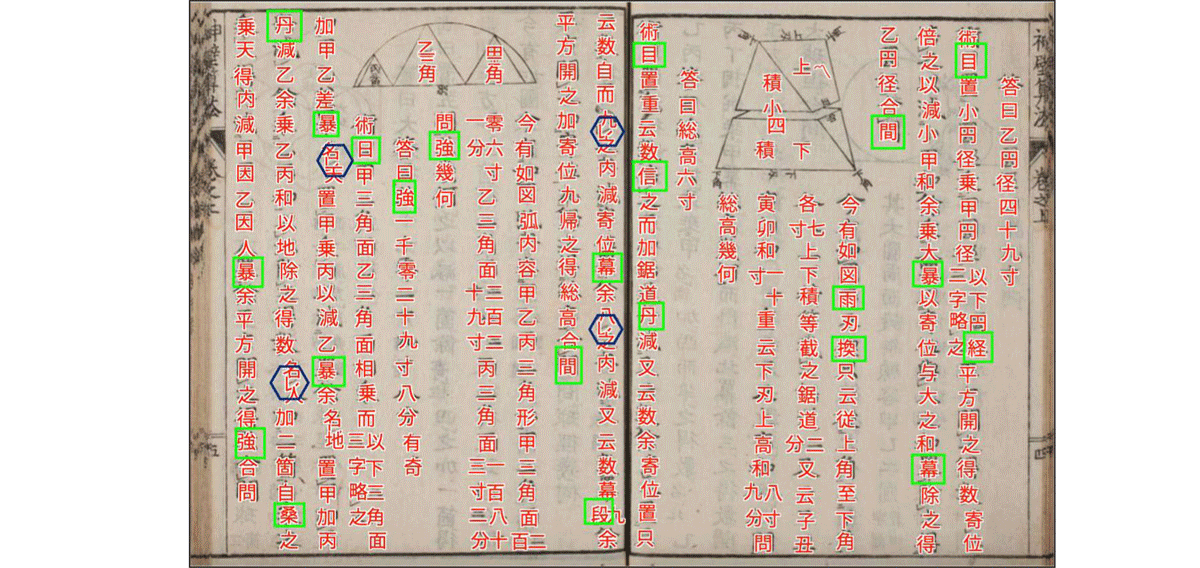 答曰乙円径四十九寸
術目置小円径乗甲円径以下円経二字略之平方開之得数寄位
倍之以減小甲和余乗大暴以寄位与大之和幕除之得
乙円径合間
今有如図雨刃換只云従上角至下角
各七寸上下積等截之鋸道二分又云子丑
寅卯和一十寸重云下刃上高和八寸九分問
総高幾何
上積
小四
下積
答曰総高六寸
術目置重云数信之而加鋸道丹減又云数余寄位置只
云数自而九之内減寄位幕余八之内減又云数幕段九余
平方開之加寄位九帰之得総高合間
今有如図弧内容甲乙丙三角形甲三角面二百
零六寸一分乙三角面二百三十九寸丙三角面一百八十三寸三分
甲三角
乙三角
問強幾何
答曰強一千零二十九寸八分有奇
術日甲三角面乙三角面相乗而以下三角面三字略之
加甲乙差暴名天置甲乗丙以減乙暴余名地置甲加丙
丹減乙余乗乙丙和以地除之得数名人加二箇自桑之
乗天得内減甲因乙因人暴余平方開之得強合問